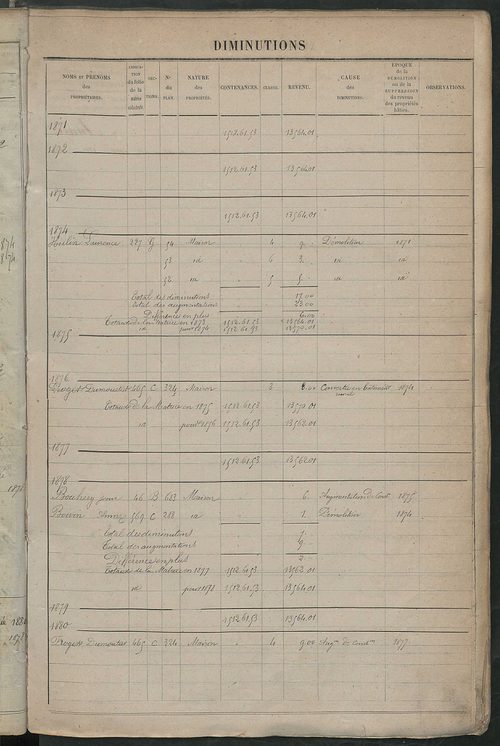 DIMINUTIONS
NOMS ET PRÉNOMS des PROPRIÉTAIRES.
INDICATION du folio de la même matrice
SECTIONS.
N° du PLAN.
NATURE des PROPRIÉTÉS.
CONTENANCES.
CLASSE.
REVENU.
CAUSE des DIMINUTIONS.
EPOQUE de la DÉMOLITION ou de la SUPPRESSION du revenu des propriétés bâties.
OBSERVATIONS.
1871
1512.61.53 13564.01
1872
1512.61.53 13564.01
1873
1512.61.53 13564.01
1874
Laurence 227 G 54 Maison 4 9. Démolition 1871
53 id 6 3. id id
52 id 5 5. id id
Total des diminutions 17.00
Total des augmentations 23.00
Différence en plus 6.00
Totaux de la matrice en 1873 1512.61.53 13564.01
id pour 1874 1512.61.53 13570.01
1875
1876
465 C 324 Maison 3 8.00 1874
Totaux de la Matrice en 1875 1512.61.53 13570.01
id pour 1876 1512.61.53 13562.01
1877
1512.61.53 13562.01
1878
46 B 633 Maison 6. Augmentation de Cont 1875
569 C 288 id 1. Démolition 1874
Total des diminutions 7.
Total des augmentations 9.
Différence en plus 2.
Totaux de la Matrice en 1877 1512.61.53 13562.01
id pour 1878 1512.61.53 13564.01
1879
1512.61.53 13564.01
1880
465 C 324 Maison 4 9.00 Augon de Conton 1877